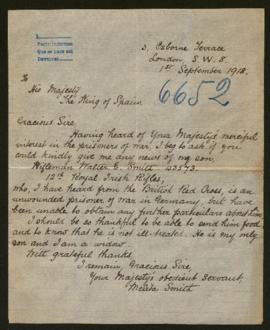 3, Osborne Terrace
London S.W. 8.
1st September 1918.
To
His Majesty
The King of Spain
6652
Gracious Sire,
Having heard of Your Majesty's merciful
interest in the prisoners of war, I beg to ask if you
could kindly give me any news of my son,
Rifleman Walter E. Smith
12th Royal Irish Rifles,
who, I have heard from the British Red Cross, is an
unwounded prisoner of war in Germany, but have
been unable to obtain any further particulars about him.
I should be so thankful to be able to send him food,
and to know that he is not ill-treated. He is my only
son and I am a widow.
With grateful thanks,
I remain, Gracious Sire,
Your Majesty's obedient servant,
Smith